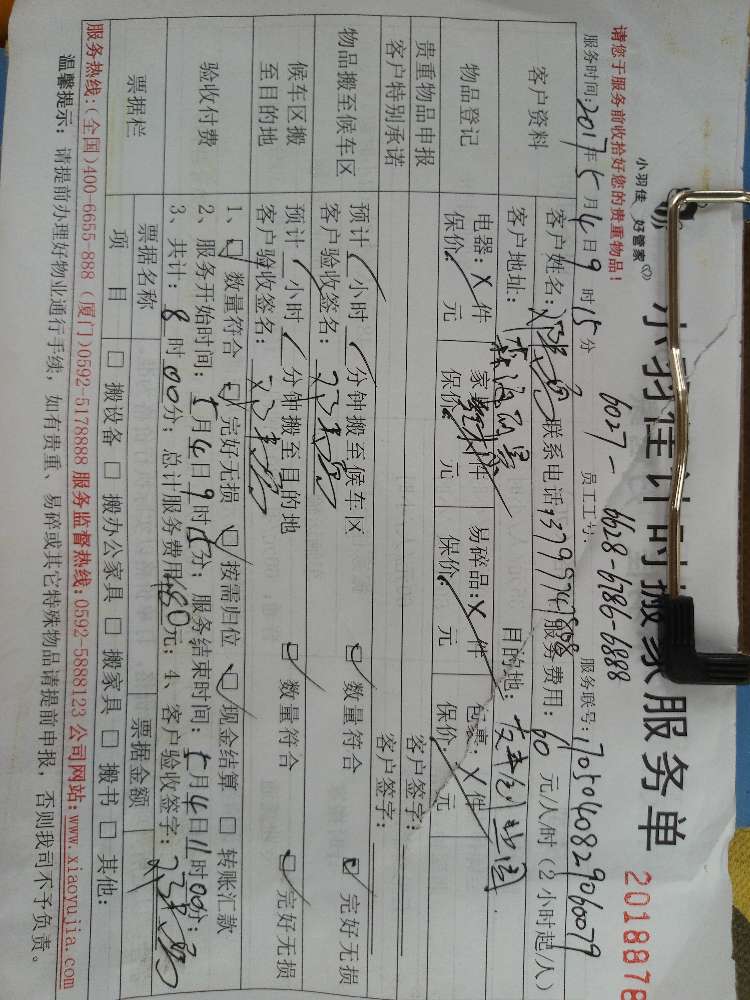 小羽佳 好管家
小羽佳计时搬家服务单
2018878
请您于服务前收拾好您的贵重物品!
6027-6628-6786-6888
服务时间:2017年5月4日9时15分 员工工号: 服务联号:1705040829060079
客户资料
客户姓名: 联系电话: 服务费用:60元/人/时(2小时起/人)
客户地址: 目的地:
物品登记
电器:X件 家 件 易碎品:X件 X件
保价: 元 保价: 元 保价: 元 保价: 元
贵重物品申报 客户签字:
客户特别承诺 客户签字:
物品搬至候车区
预计 小时 分钟搬至候车区 ☑ 数量符合 ☑ 完好无损
客户验收签名:
候车区搬至目的地
预计 小时 分钟搬至目的地 ☑ 数量符合 ☑ 完好无损
客户验收签名:
验收付费
1、☑ 数量符合 ☑ 完好无损 ☑ 按需归位 ☑ 现金结算 □ 转账汇款
2、服务开始时间:5月4日9时15分;服务结束时间:5月4日11时00分;
3、共计:8时00分;总计服务费用:480元;4、客户验收签字:
票据栏
票据名称 票据金额
项目 □ 搬设备 □ 搬办公家具 □ 搬家具 □ 搬书 □ 其他:
服务热线:(全国)400-6655-888 (厦门)0592-5178888 服务监督热线:0592-5888123 公司网站:www.xiaoyujia.com
温馨提示:请提前办理好物业通行手续,如有贵重、易碎或其它特殊物品请提前申报,否则我司不予负责。